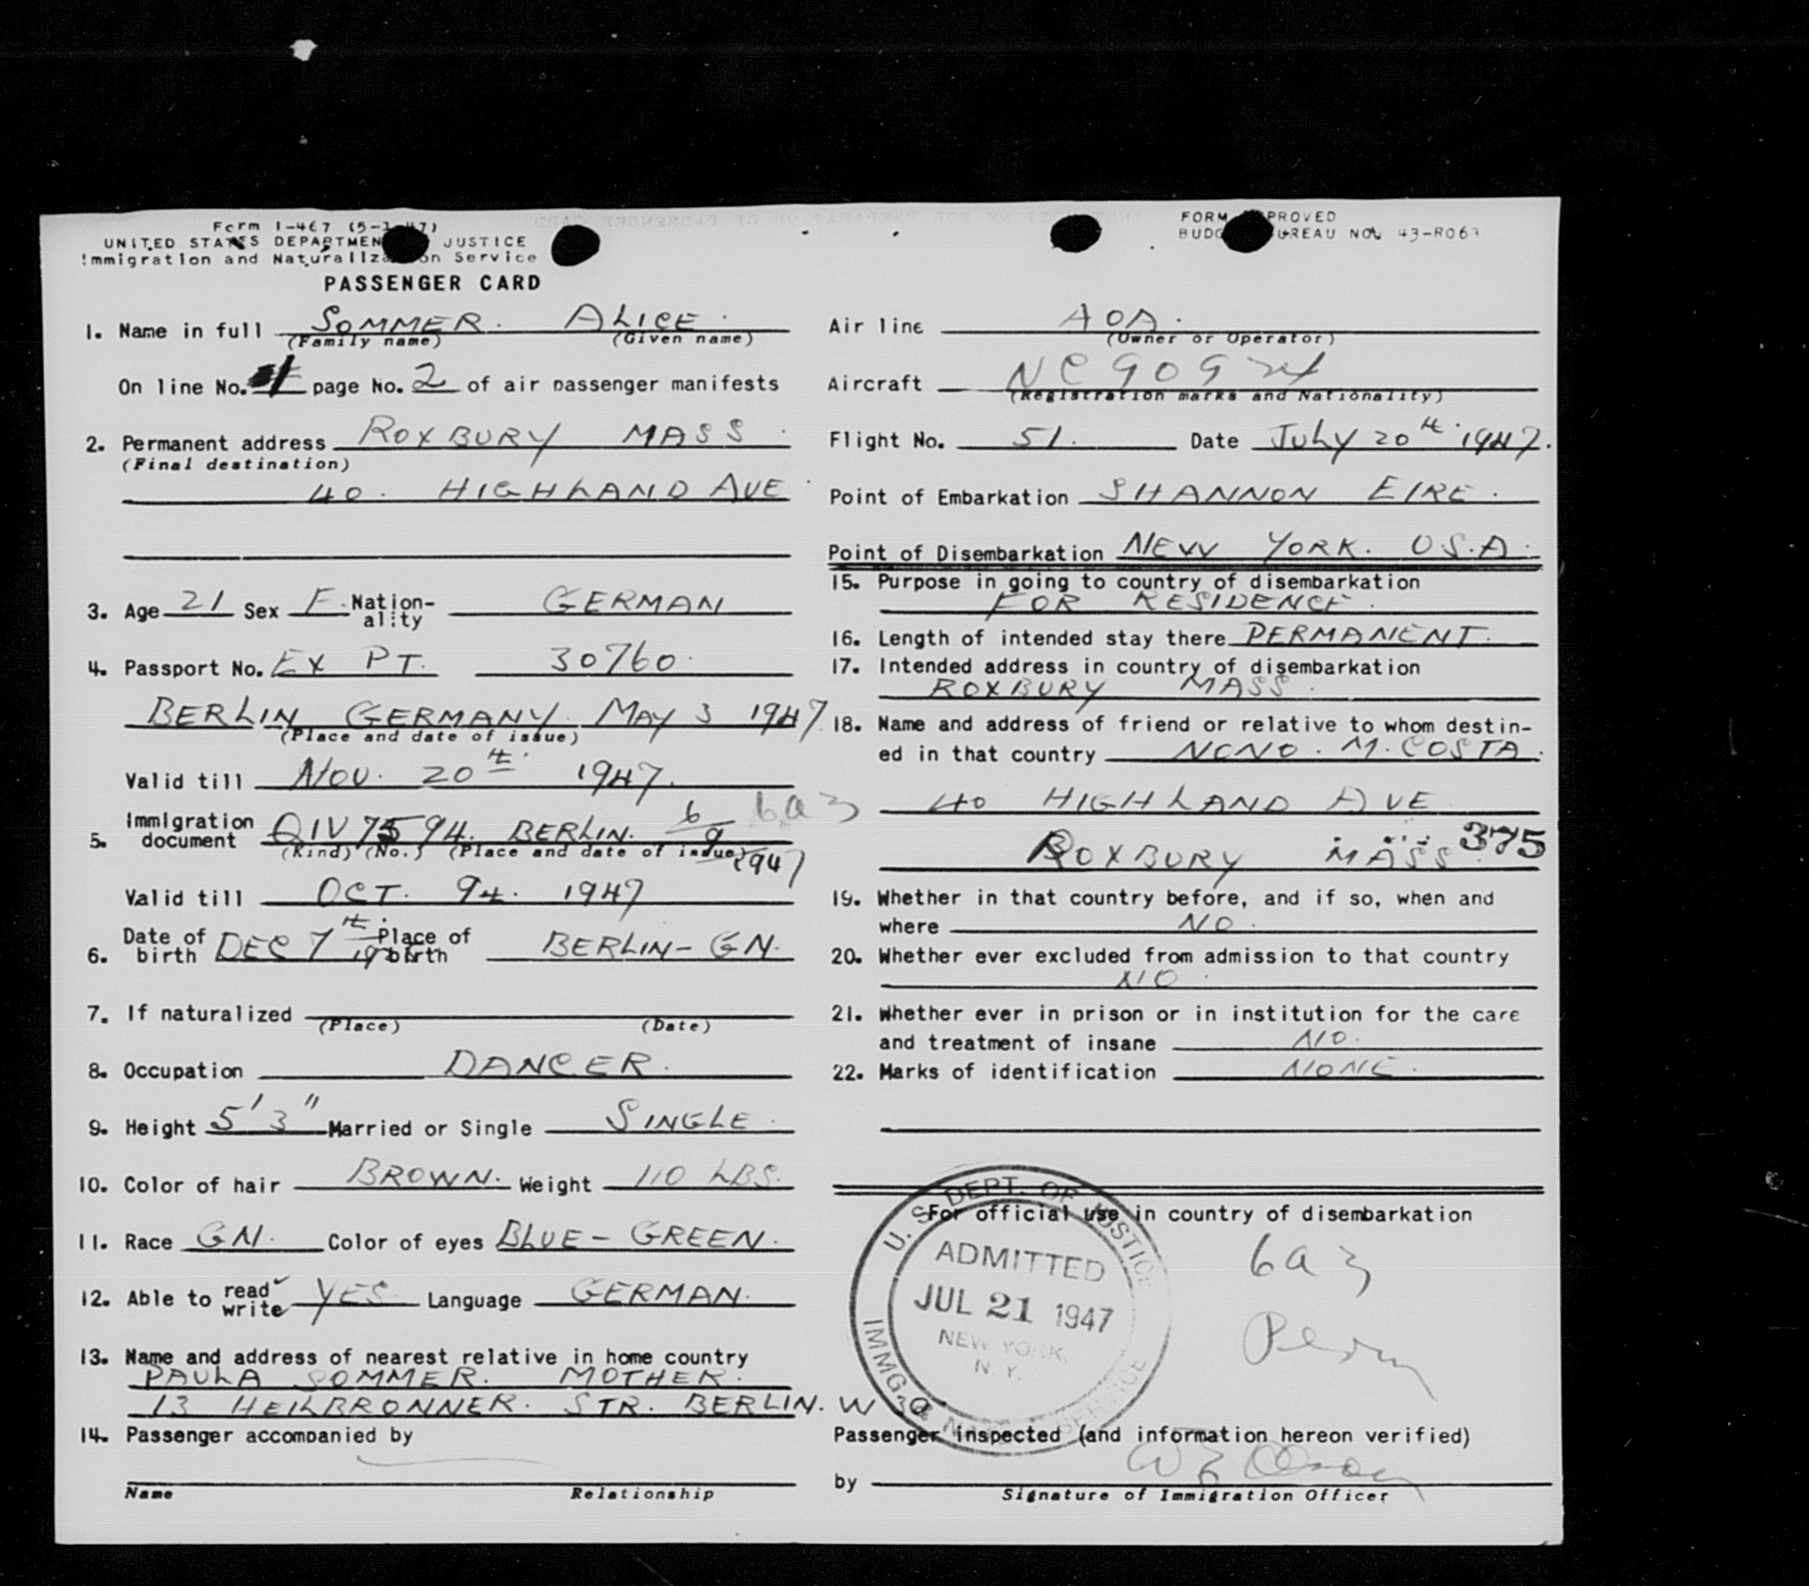 Form I-467 (5-1-47)
UNITED STATES DEPARTMENT JUSTICE
Immigration and Naturalization Service
PASSENGER CARD
FORM APPROVED
BUDG UREAU NO. 43-R063
1. Name in full SOMMER. ALICE.
(Family name) (Given name)
On line No. 1 page No. 2 of air passenger manifests
2. Permanent address ROXBURY MASS
(Final destination)
40. HIGHLAND AVE
3. Age 21 Sex F. Nation-ality GERMAN
4. Passport No. EX PT. 30760.
BERLIN GERMANY. MAY 3 1947
(Place and date of issue)
Valid till NOV. 20th 1947.
5. Immigration document QIV 7594. BERLIN. 6/9 1947 6a3
(Kind) (No.) (Place and date of issue)
Valid till OCT. 94. 1947
6. Date of birth DEC 7th Place of birth BERLIN-GN.
7. If naturalized
(Place) (Date)
8. Occupation DANCER.
9. Height 5' 3" Married or Single SINGLE.
10. Color of hair BROWN. Weight 110 LBS.
11. Race GN. Color of eyes BLUE-GREEN.
12. Able to read write YES Language GERMAN.
13. Name and address of nearest relative in home country
PAULA SOMMER. MOTHER.
13 HEILBRONNER. STR. BERLIN. W 30
14. Passenger accompanied by
Name Relationship
Air line AOA.
(Owner or Operator)
Aircraft NC 909
(Registration marks and Nationality)
Flight No. 51. Date JULY 20th 1947.
Point of Embarkation SHANNON EIRE.
Point of Disembarkation NEW YORK. U.S.A.
15. Purpose in going to country of disembarkation
FOR RESIDENCE.
16. Length of intended stay there PERMANENT.
17. Intended address in country of disembarkation
ROXBURY MASS.
18. Name and address of friend or relative to whom destin-
ed in that country NONO. M. COSTA.
40 HIGHLAND AVE
ROXBURY MASS. 375
19. Whether in that country before, and if so, when and
where NO.
20. Whether ever excluded from admission to that country
NO.
21. Whether ever in prison or in institution for the care
and treatment of insane NO.
22. Marks of identification NONE.
For official use in country of disembarkation
6a3
U. S. DEPT. OF JUSTICE
ADMITTED
JUL 21 1947
NEW YORK,
N. Y.
IMMG. & NAT. SERVICE
Passenger inspected (and information hereon verified)
by
Signature of Immigration Officer